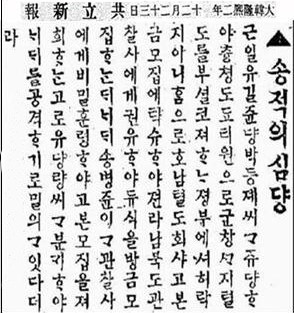 大韓隆熙二年 十二月二十三日 共立新報
▲송적의심댱
근일유길쥰냥박등제씨ᄀᆞ유댱ᄒᆞ
야츙쳥도됴티원으로군창셕지텰
도를부셜코져ᄒᆞᄂᆞᆫ졍부에셔허락
지아니홈으로호남텰도회샤고본
금모집에탁슈ᄒᆞ야젼라남북도관
찰ᄉᆞ에게권유ᄒᆞ야듀식을방금모
집ᄒᆞᄂᆞᆫ더뎌송병쥰이ᄀᆞ관찰ᄉᆞ
에게비밀훈령ᄒᆞ야고본모집을져
희ᄒᆞᄂᆞᆫ고로유댱량씨ᄀᆞ분긔ᄒᆞ야
뇌더를공격ᄒᆞ기로밀의ᄀᆞ잇다더
라